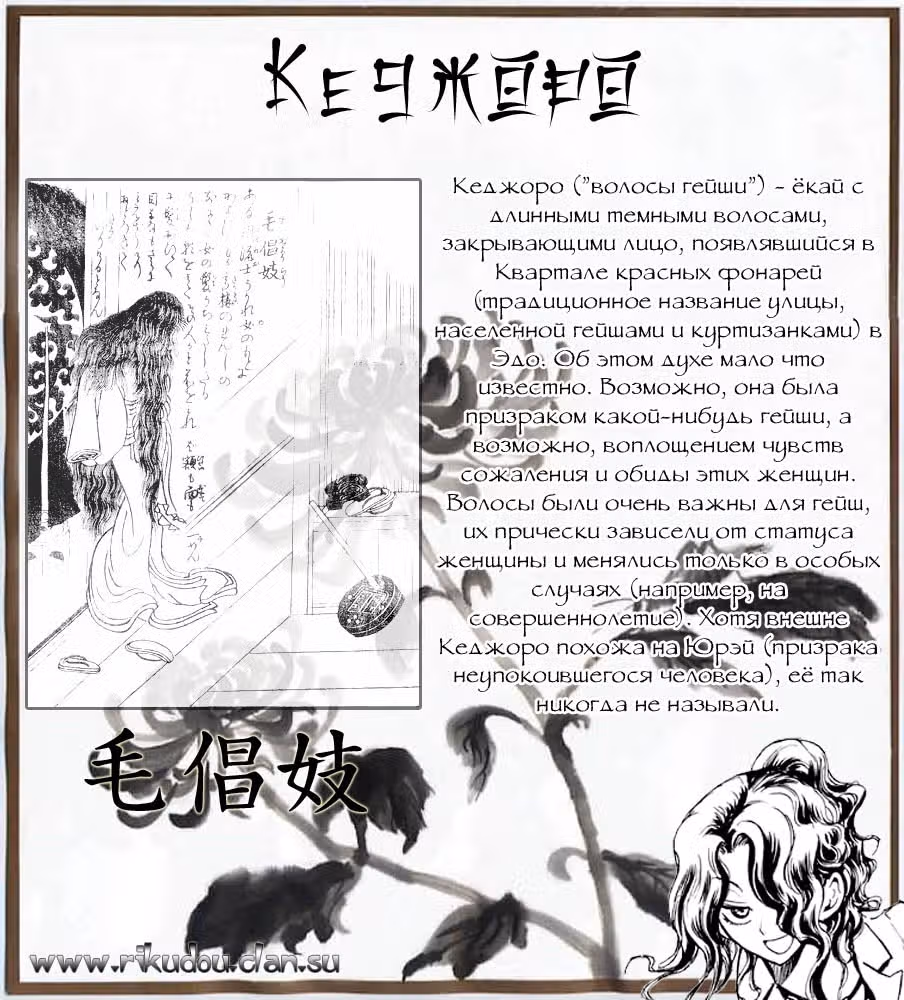 Кеджоро
Кеджоро ("волосы гейши") - ёкай с
длинными темными волосами,
закрывающими лицо, появлявшийся в
Квартале красных фонарей
(традиционное название улицы,
населенной гейшами и куртизанками) в
Эдо. Об этом духе мало что
известно. Возможно, она была
призраком какой-нибудь гейши, а
возможно, воплощением чувств
сожаления и обиды этих женщин.
Волосы были очень важны для гейш,
их прически зависели от статуса
женщины и менялись только в особых
случаях (например, на
совершеннолетие). Хотя внешне
Кеджоро похожа на Юрэй (призрака
неупокоившегося человека), её так
никогда не называли.
毛倡妓
毛倡妓
www.rikudou.clan.su